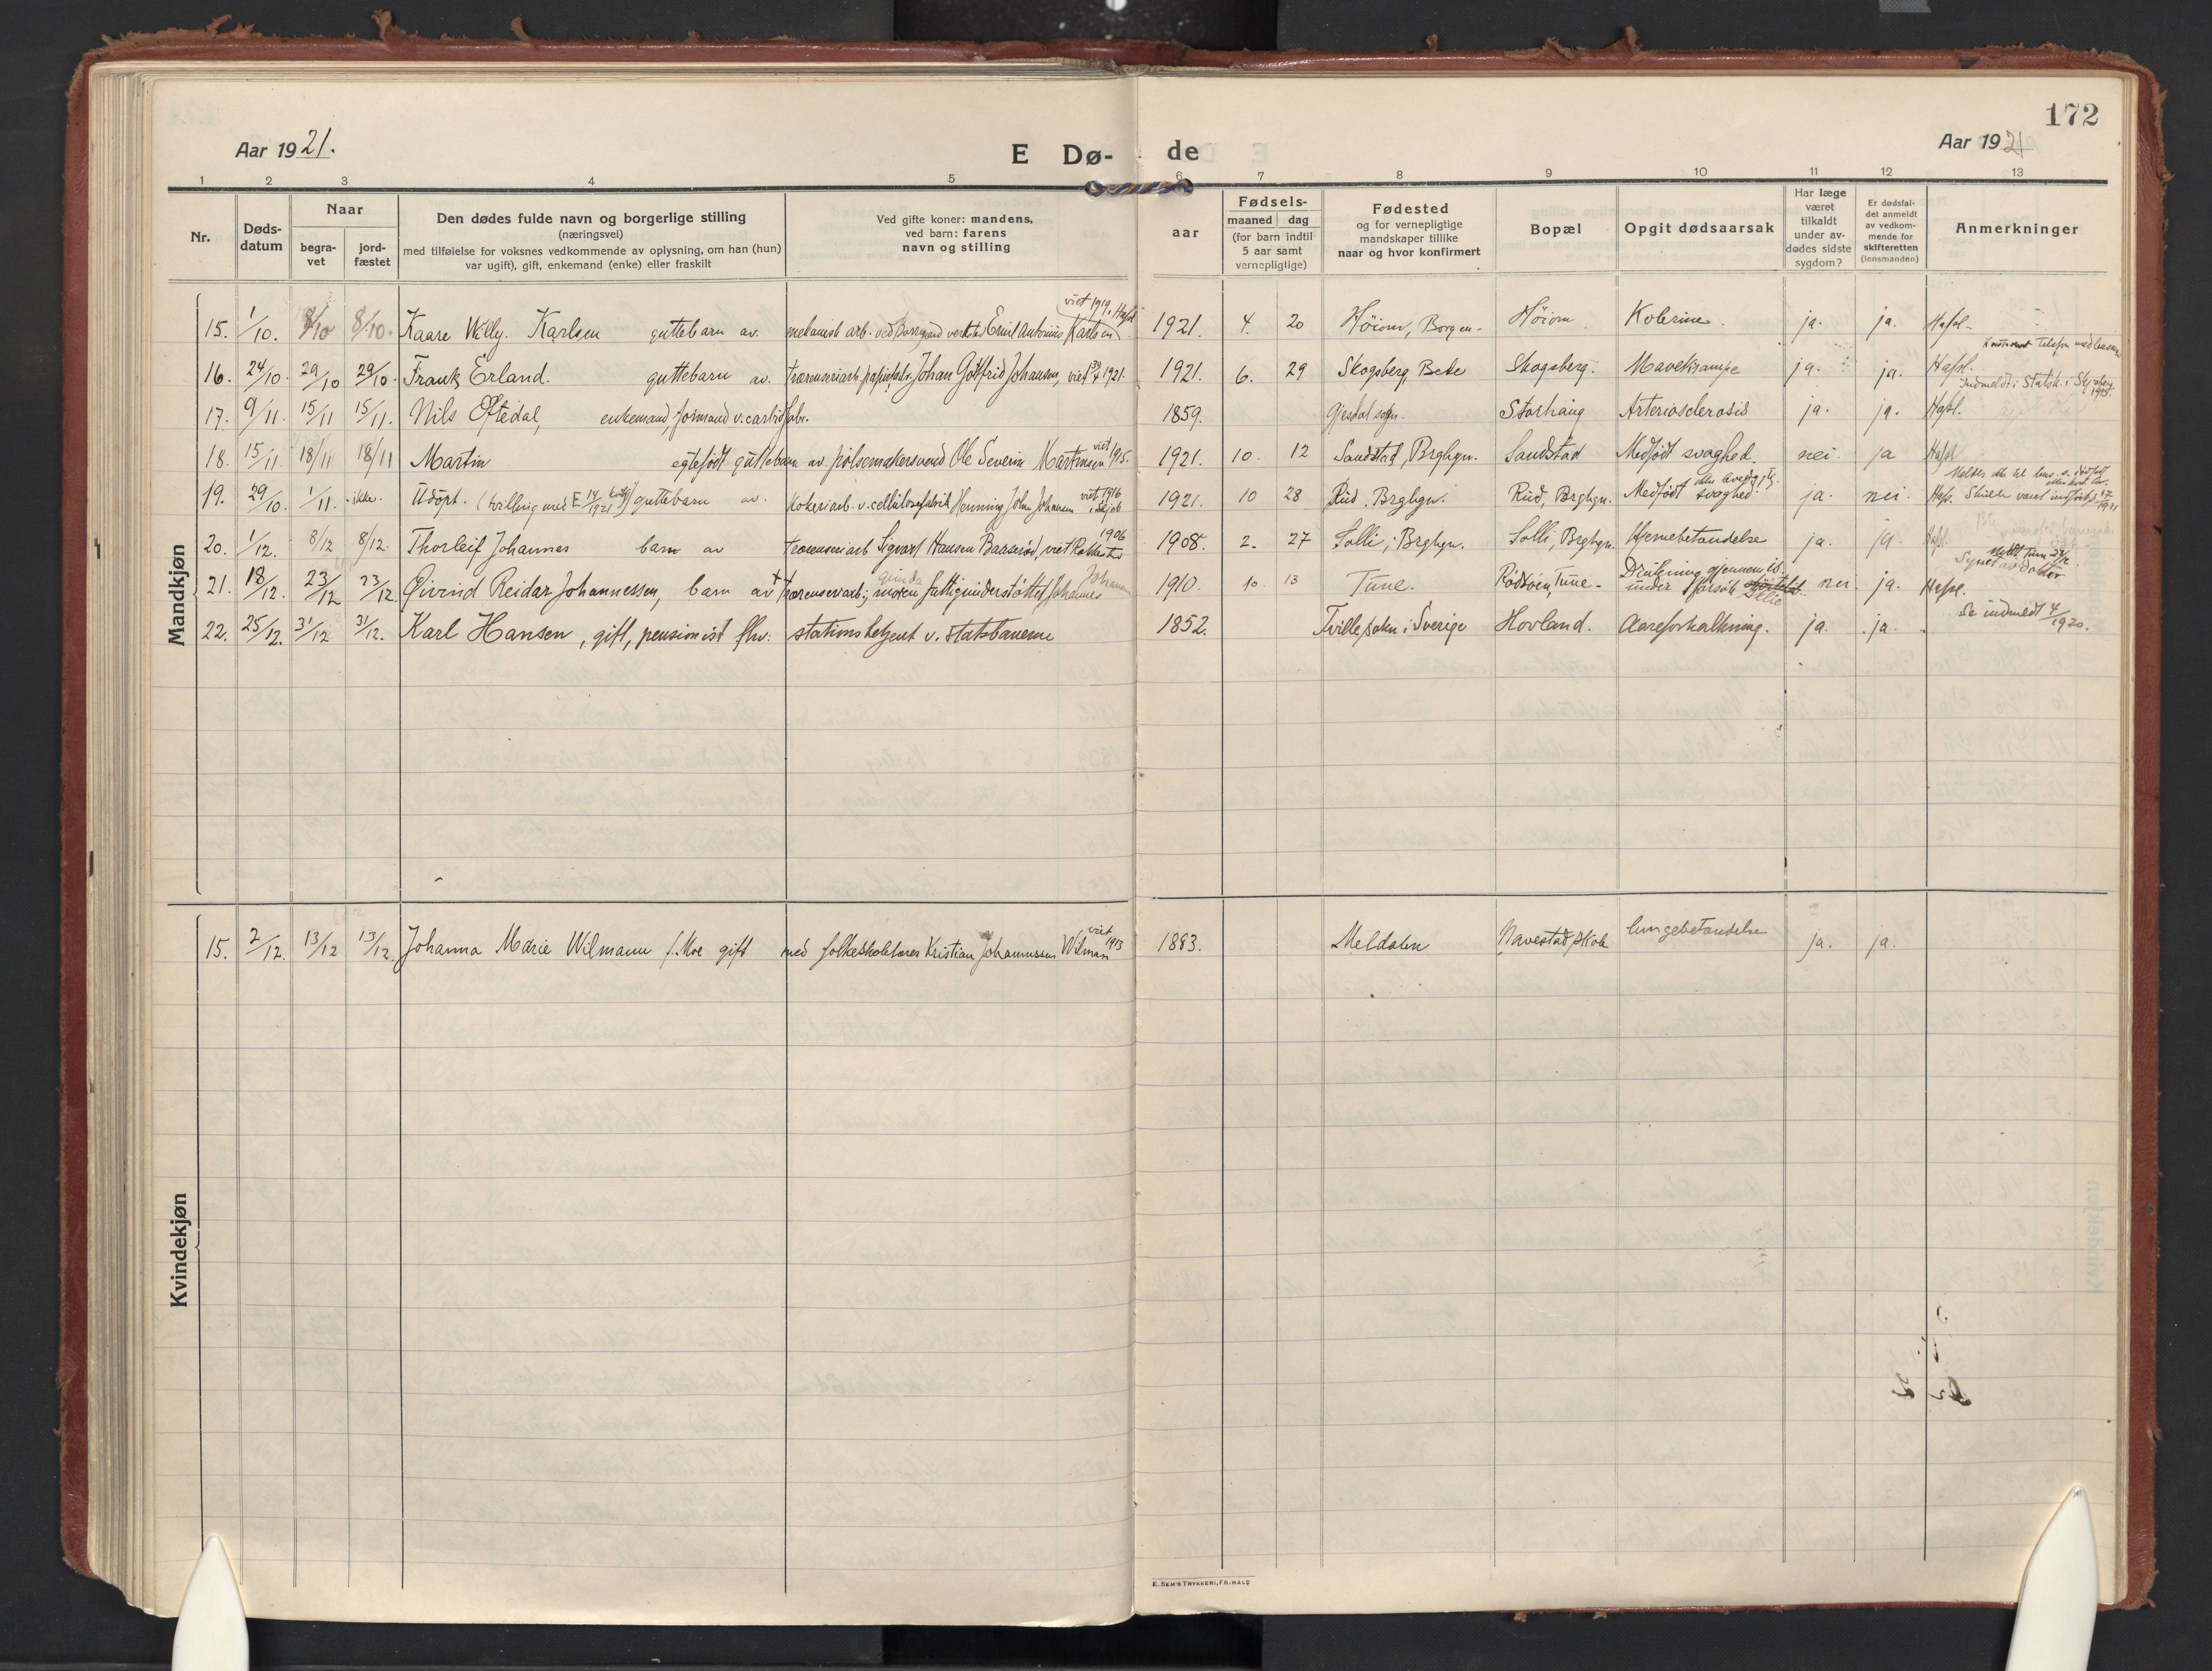 172
Aar 1921.
E Dø-de
Aar 1921
1 2 3 4 5 6 7 8 9 10 11 12 13
Nr.
Døds-
datum
Naar
begra-
vet
jord-
fæstet
Den dødes fulde navn og borgerlige stilling
(næringsvei)
med tilføielse for voksnes vedkommende av oplysning, om han (hun)
var ugift), gift, enkemand (enke) eller fraskilt
Ved gifte koner: mandens,
ved barn: farens
navn og stilling
aar
Fødsels-
maaned dag
(for barn indtil
5 aar samt
vernepligtige)
Fødested
og for vernepligtige
mandskaper tillike
naar og hvor konfirmert
Bopæl
Opgit dødsaarsak
Har læge
været
tilkaldt
under av-
dødes sidste
sygdom?
Er dødsfal-
det anmeldt
av vedkom-
mende for
skifteretten
(lensmanden)
Anmerkninger
Mandkjøn
viet 1919, Hafsl
15. 1/10. 8/10 8/10. Kaare Willy Karlsen guttebarn av mekanisk arb. ved Emil Antonius Karlsen 1921. 4. 20 Høiom, Borgen- Høiom Kolerine. ja. ja. Hafsl.
Telefon med
16. 24/10. 29/10 29/10. Frank Erland. guttebarn av Johan Gotfrid Johansen, viet 1921. 1921. 6. 29 Skogsberg, Skogsberg. Mavekrampe ja. ja. Hafsl.
Indmeldt i Statsk. i
17. 9/11. 15/11 15/11. Nils Oftedal, enkemand, formand v. carbidfabr. 1859. Gjesdal sogn. Storhaug Arteriosclerosis ja. ja. Hafsl.
18. 15/11. 18/11 18/11 Martin egtefødt guttebarn av pølsemakersvend Ole Severin Martinsen viet 1915. 1921. 10. 12 Sandstad, Brghgn. Sandstad Medfødt svaghed. nei. ja Hafsl
19. 29/10. 1/11. ikke. Udøpt. (tvilling med E 14/1921) guttebarn av. Kokeriarb. v. cellulosefabrik Henning John Johansen viet 1916 1921. 10 28 Rud. Brghgn. Rud, Brghgn. Medfødt svaghed. ja. nei. Hafs.
20. 1/12. 8/12 8/12. Thorleif Johannes barn av Sigvart Hansen Baaserød, viet 1906 1908. 2. 27 Solli, i Brghgn. Solli, Brghgn. Hjernebetændelse ja. ja. Hafsl.
Synet av doktor
21. 18/12. 23/12 23/12 Øivind Reidar Johannessen, barn av moren Gunda fattigunderstøttet 1910. 10 13 Tune. Tune. Drukning gjennem is under forsøk ner. ja. Hafsl.
22. 25/12. 31/12 31/12. Karl Hansen, gift, pensionist fhv. stationsbetjent v. statsbanerne 1852. i Sverige Hovland. Aareforkalkning. ja. ja. Se indmeldt 4/1920.
Kvindekjøn
15. 2/12. 13/12 13/12. Johanna Marie Wilmann f. Moe gift med folkeskolelærer Kristian Johannessen Wilmann viet 1913 1883. Meldalen Navestad skole lungebetændelse ja. ja.
E. SEM'S TRYKKERI, FR.HALD